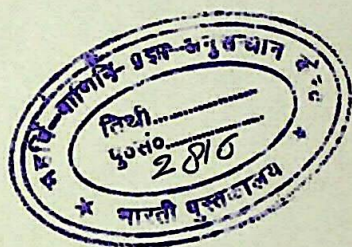 महर्षि-पाणिनि-प्रज्ञा-अनुसन्धान केन्द्र
तिथी..............
पु०सं०..............
2810
* भारती पुस्तकालय *